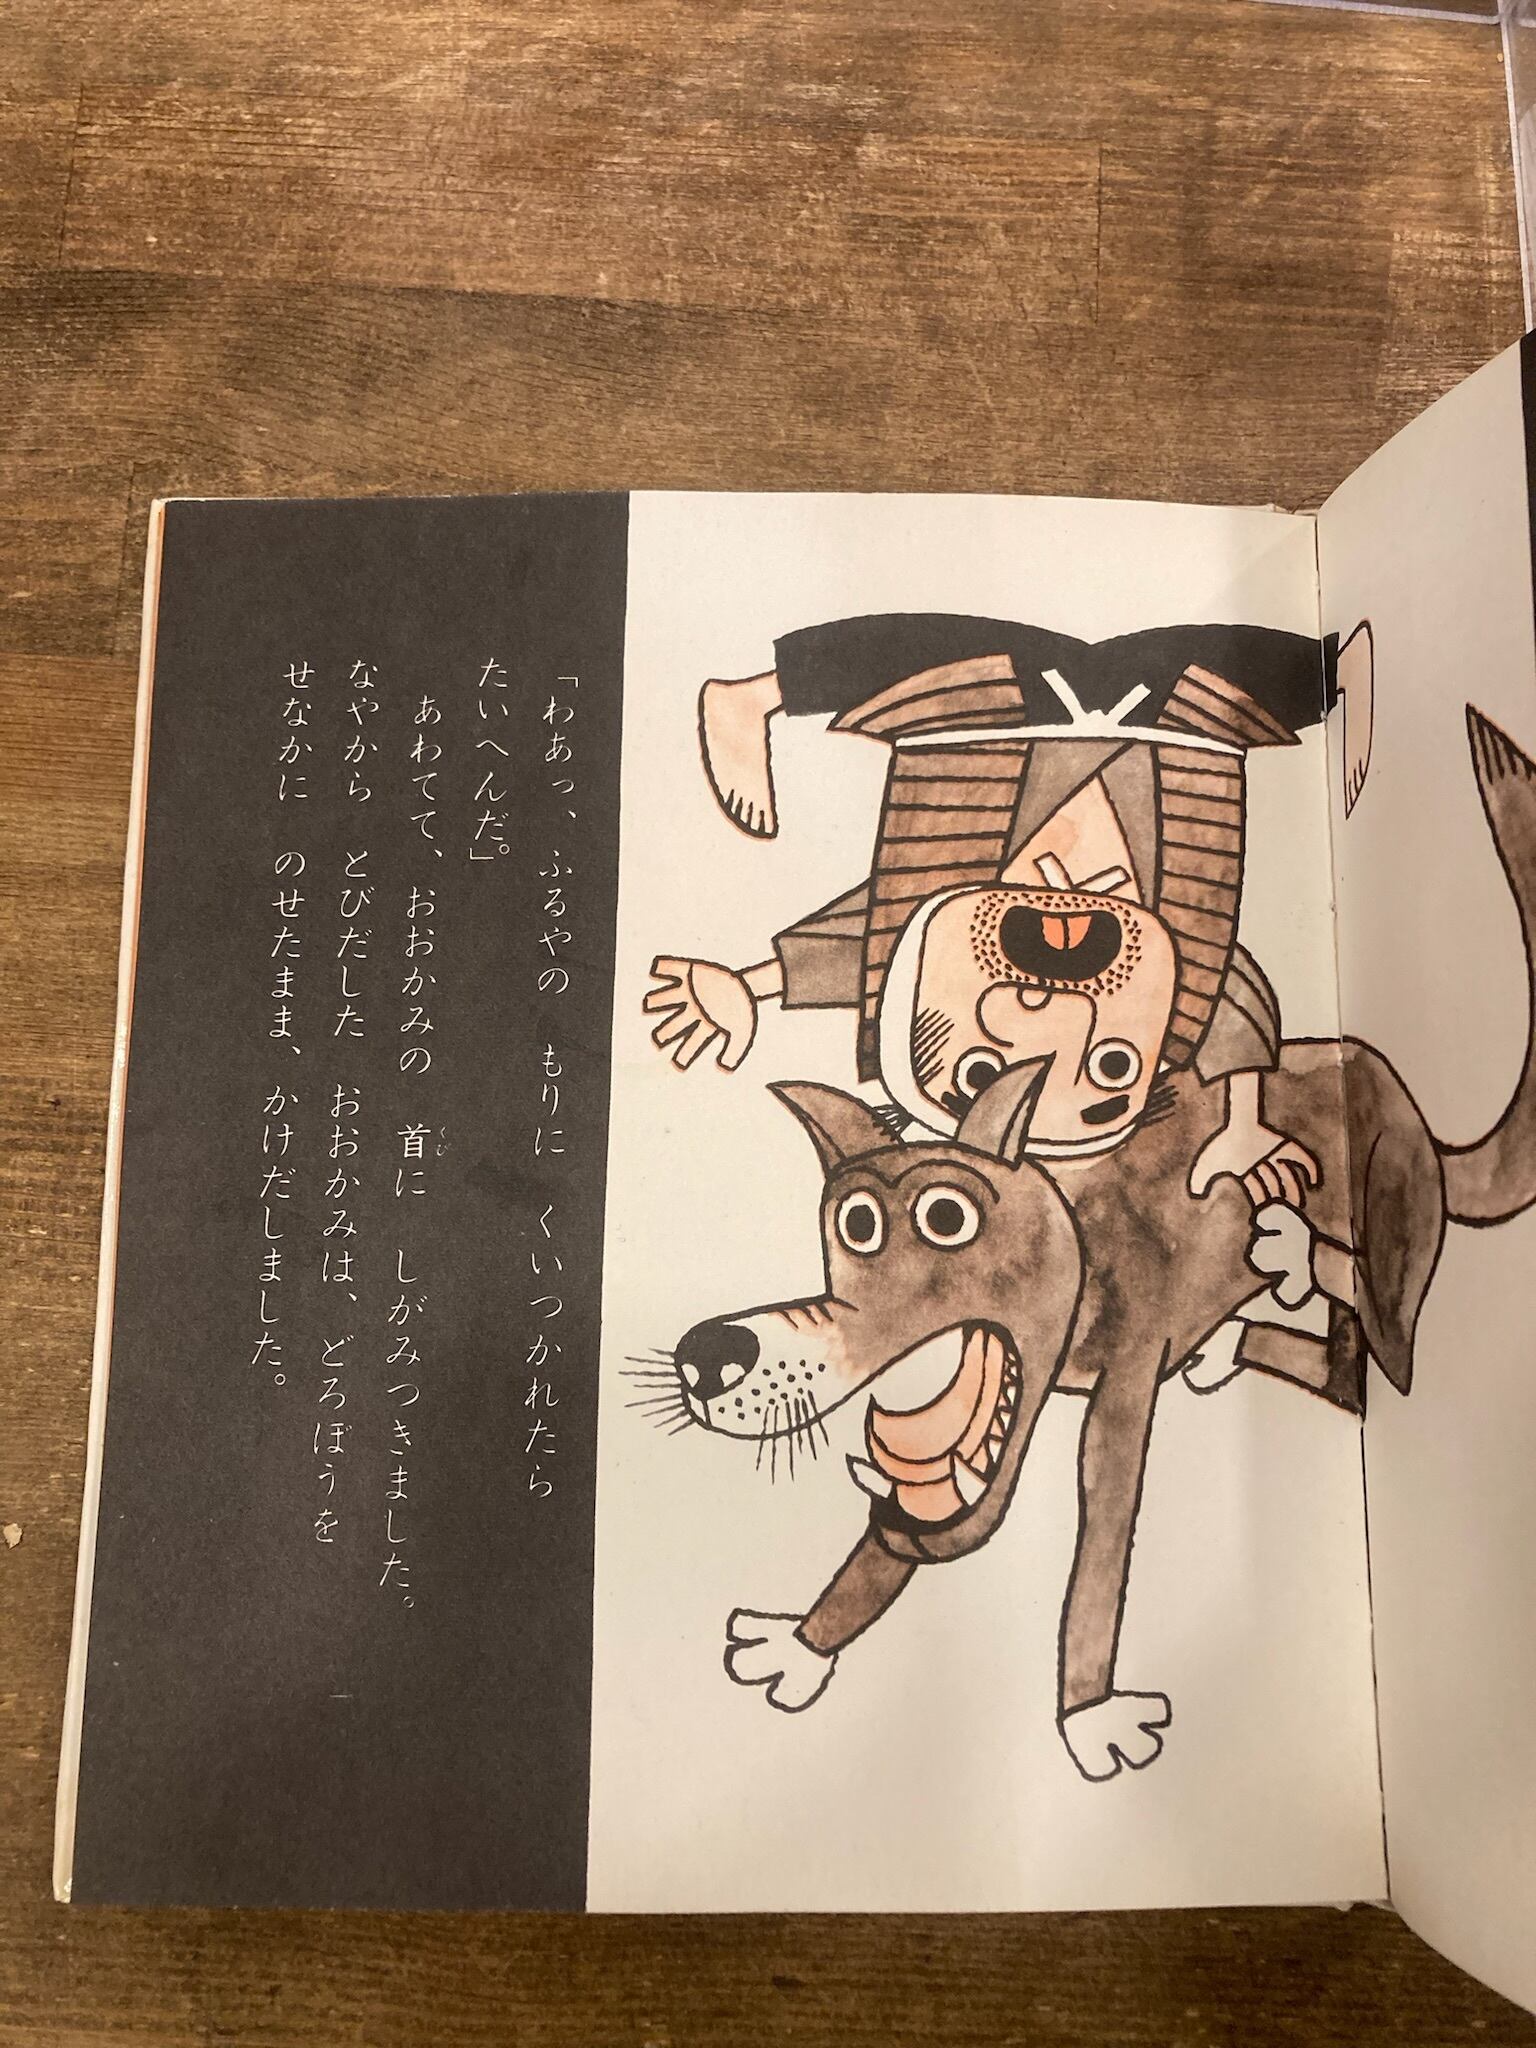 「わあっ、ふるやの　もりに　くいつかれたら
たいへんだ。」
　あわてて、おおかみの　首に　しがみつきました。
くび
なやから　とびだした　おおかみは、どろぼうを
せなかに　のせたまま、かけだしました。